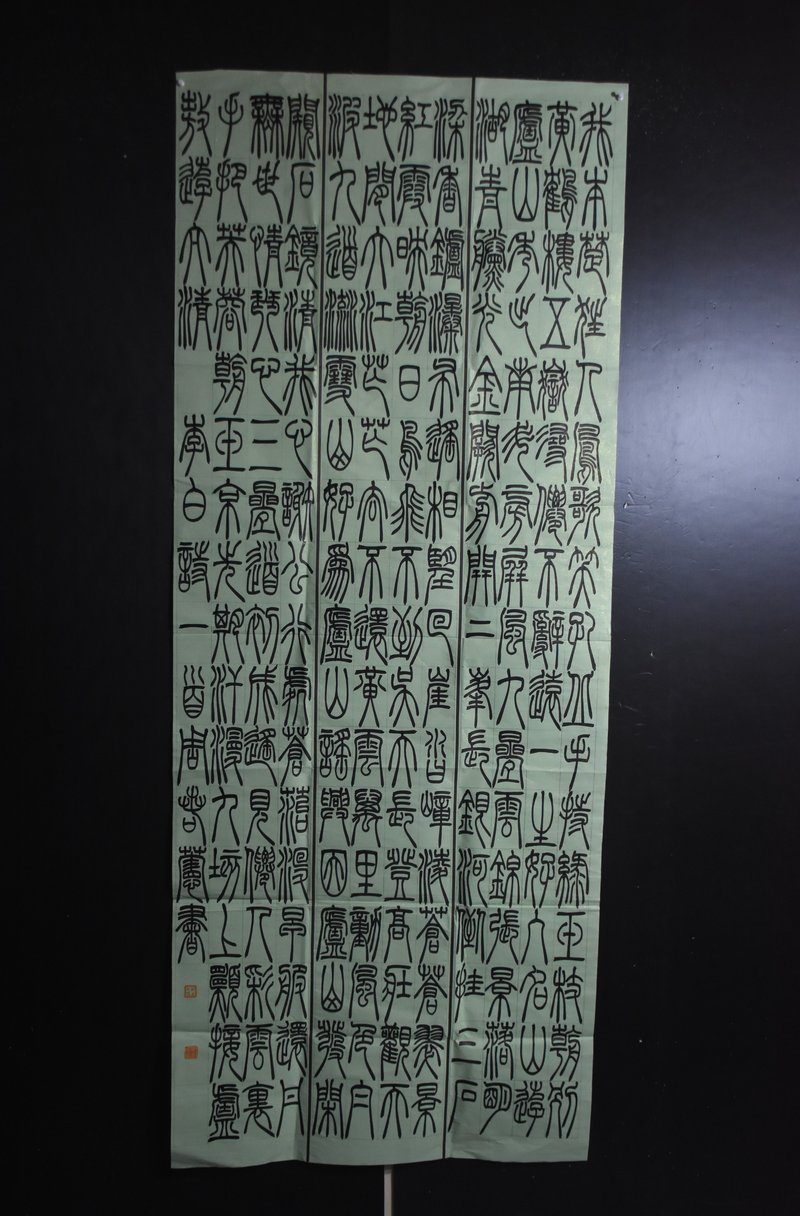 我本楚狂人鳳歌笑孔丘手持綠玉杖朝別
黃鶴樓五嶽尋僊不辭遠一生好入名山遊
廬山秀出南斗旁屏風九疊雲錦張景落明
湖青黛光金闕前開二峯長銀河倒挂三石
梁香鑪瀑布遙相望回崖沓嶂淩蒼蒼翠景
紅霞映朝日鳥飛不到吳天長登高壯觀天
地間大江茫茫去不還黃雲萬里動風色白
波九道流雪山好為廬山謠興因廬山發閑
窺石鏡清我心謝公行處蒼苔沒早服還丹
無世情琴心三疊道初成遙見僊人彩雲裏
手把芙蓉朝玉京先期汗漫九垓上願接盧
敖遊太清 李白詩一首周蕙書